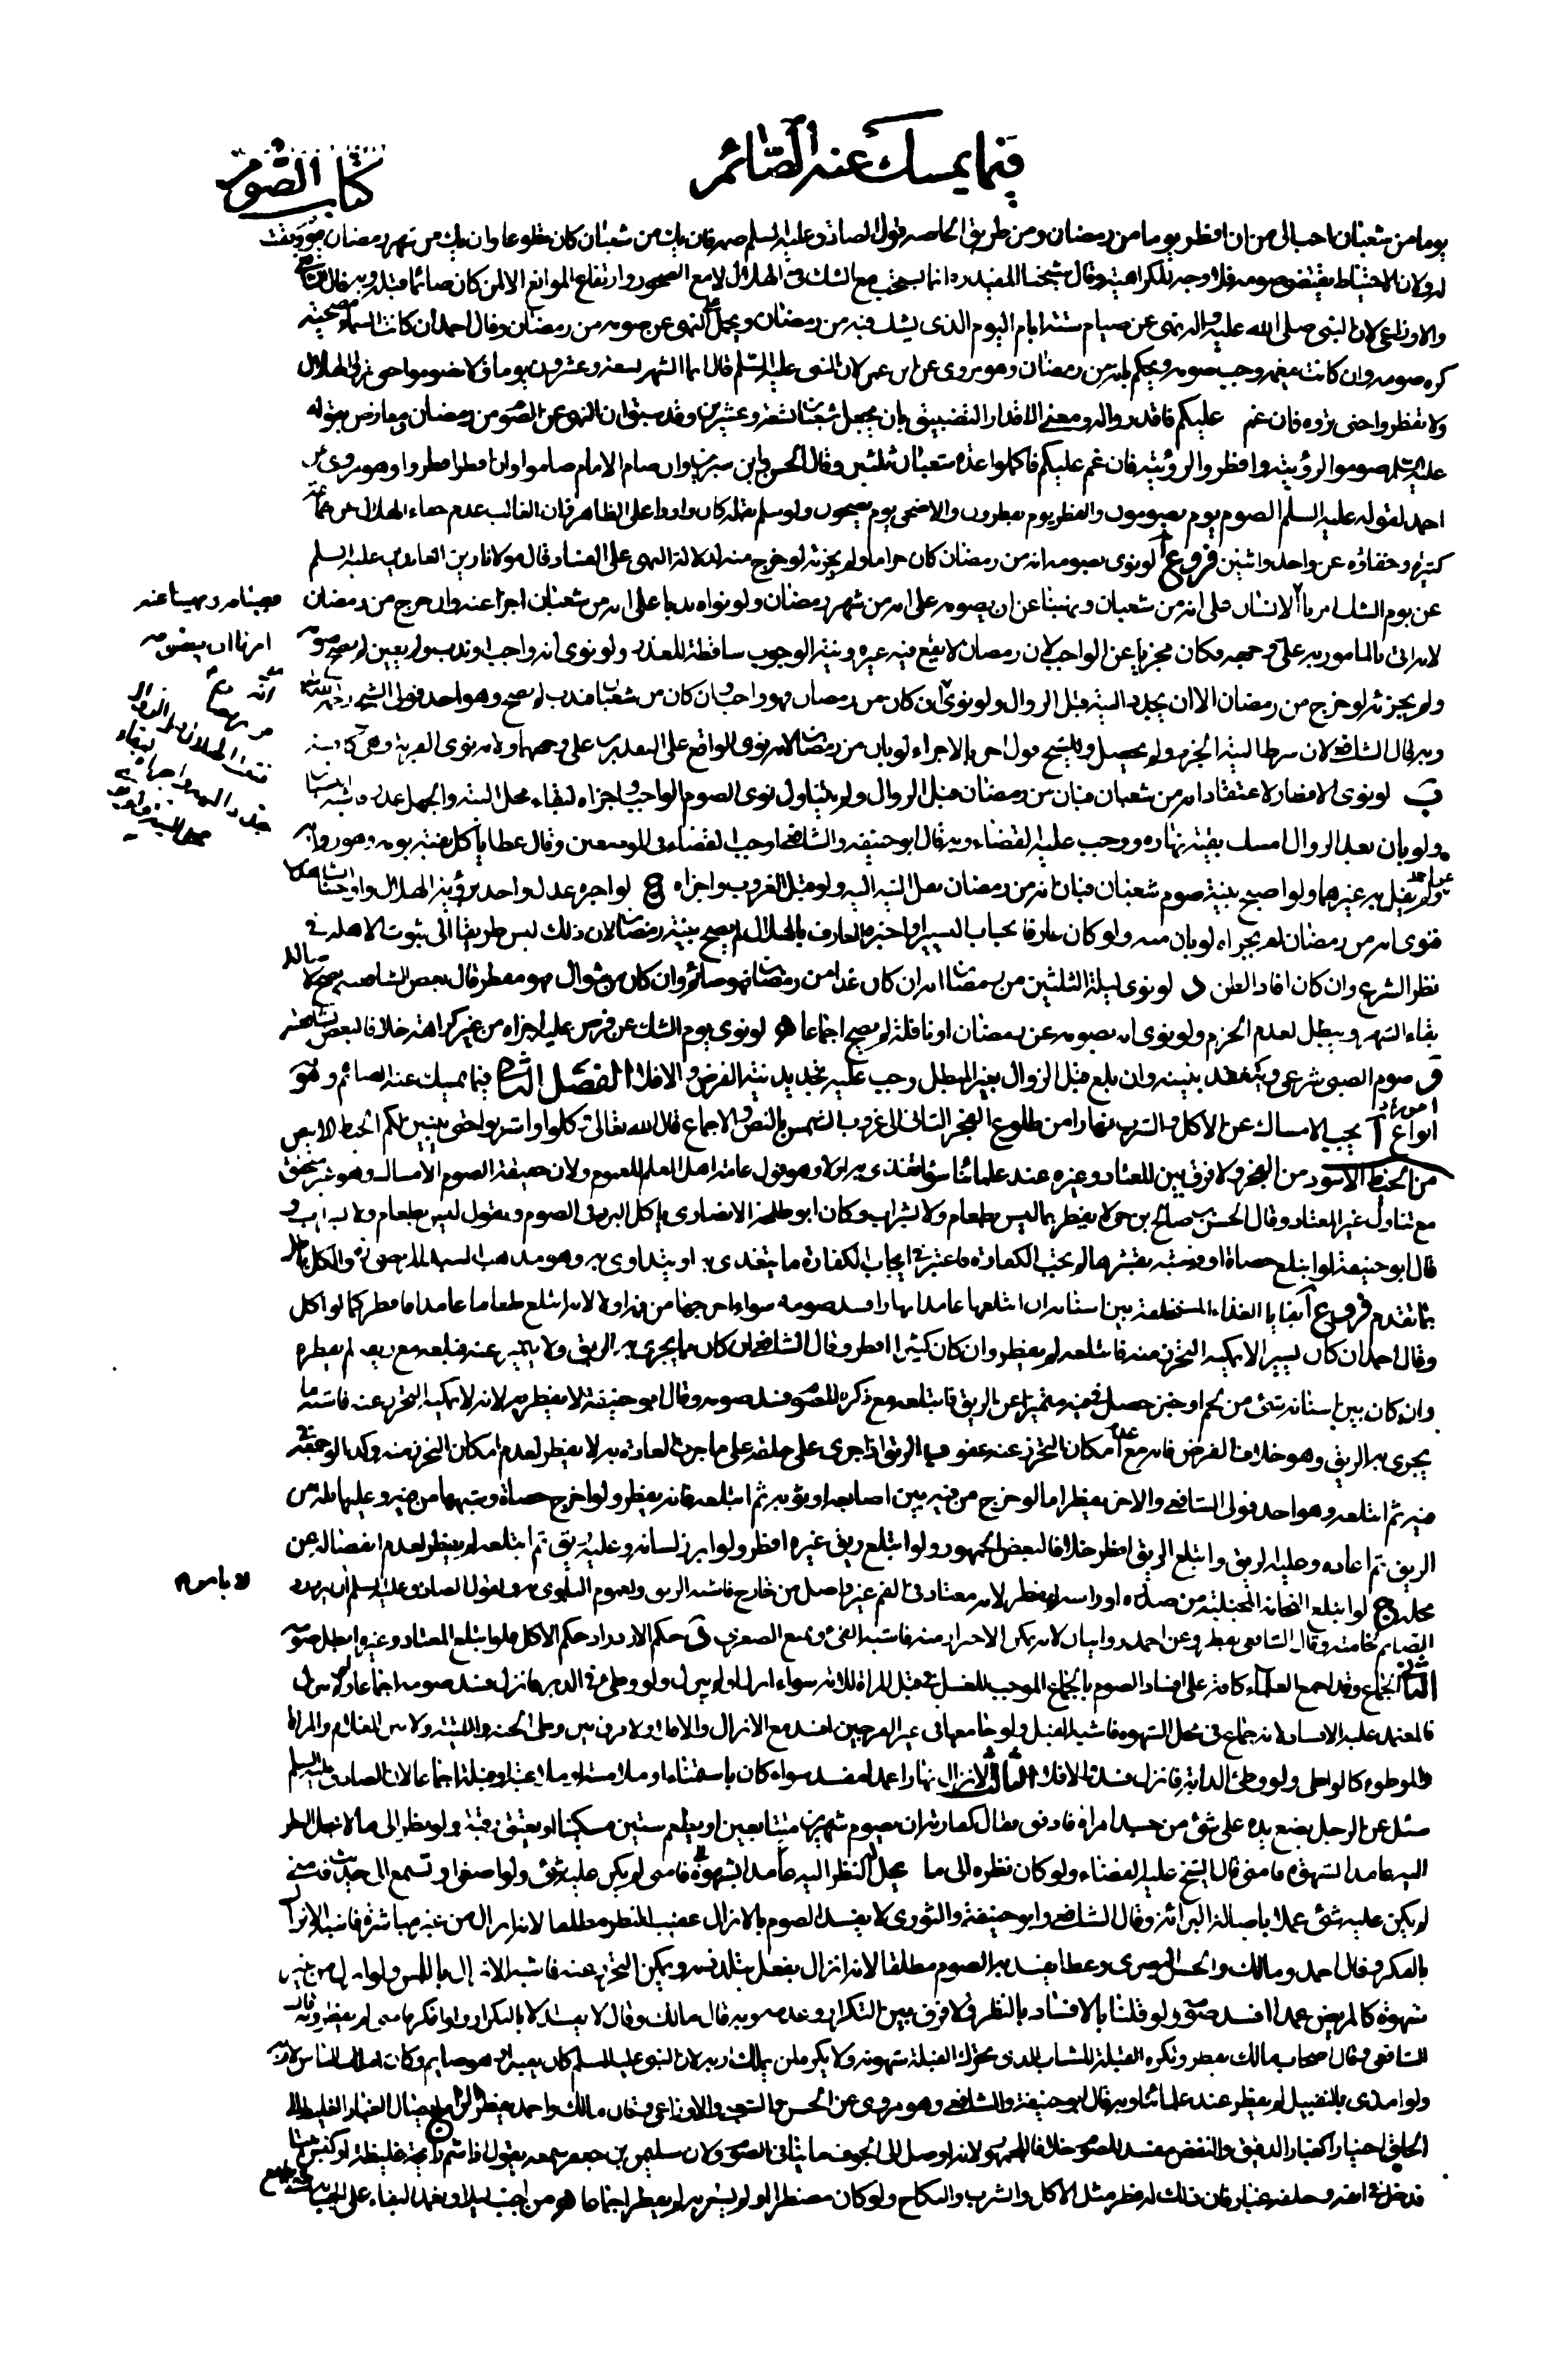 فيما يمسك عنه الصائم
كتاب الصوم
يوما من شعبان احب الى من ان افطر يوما من رمضان ومن طريق الخاصه قول الصادق عليه السلم صمه فان يك من شعبان كان تطوعا وان يك من شهر رمضان فيوم وفقت
له ولان الاحتياط يقتضى صومه فلا وجه للكراهية وقال شيخنا المفيد ره انما يستحب مع الشك فى الهلال لا مع الصحو وارتفاع الموانع الا لمن كان صائما قبله وبه قال الشافعى
والاوزاعى لان النبى صلى الله عليه واله نهى عن صيام ستة ايام اليوم الذى يشك فيه من رمضان ويحمل على النهى عن صومه من رمضان وقال احمد ان كانت السماء مصحية
كره صومه وان كانت مغيمة وجب صومه ويحكم بانه من رمضان وهو مروى عن ابن عمر لان النبى عليه السلم قال انما الشهر تسعة وعشرون يوما فلا تصوموا حتى تروا الهلال
ولا تفطروا حتى تروه فان غم عليكم فاقدروا له ومعنى الاقدار التضييق بان يجعل شعبان تسعة وعشرين وقد سبق ان النهى عن الصوم من رمضان ومعارض بقوله
عليه السلم صوموا لرؤيته وافطروا لرؤيته فان غم عليكم فاكملوا عدة شعبان ثلثين وقال الحسن وابن سيرين ان صام الامام صاموا وان افطر افطروا وهو مروى عن
احمد لقوله عليه السلم الصوم يوم تصومون والفطر يوم تفطرون والاضحى يوم تضحون ولو سلم نقله كان واردا على الظاهر فان الغالب عدم خفاء الهلال عن جماعة
كثيرة وخفاؤه عن واحد واثنين فروع آ لو نوى بصومه انه من رمضان كان حراما ولم يجزئه لو خرج منه لدلالة النهى على الفساد وقال مولانا زين العابدين عليه السلم
عن يوم الشك امرنا الانسان على انه من شعبان ونهينا عن ان يصومه على انه من شهر رمضان ولو نواه ندبا على انه من شعبان اجزا عنه وان خرج من رمضان
لانه اتى بالمامور به على وجهه فكان مجزيا عن الواجب لان رمضان لا يقع فيه غيره ونية الوجوب ساقطة للعذر ولو نوى انه واجب او ندب ولم يعين لم يصح صومه
ولم يجزئه لو خرج من رمضان الا ان يجدد النية قبل الزوال ولو نوى ان كان من رمضان فهو واجب وان كان من شعبان فندب لم يصح وهو احد قولى الشيخ رحمه الله
وبه قال الشافعى لان شرط النية الجزم ولم يحصل وللشيخ قول اخر بالاجزاء لو بان من رمضان لانه نوى الواقع على التقديرين على وجههما ولانه نوى القربة وهى كافية
ب لو نوى الافطار لاعتقاد انه من شعبان فبان من رمضان قبل الزوال ولم يتناول نوى الصوم الواجب واجزاه لبقاء محل النية والجهل عذر فاشبه النسيان
ولو بان بعد الزوال امسك بقية نهاره ووجب عليه القضاء وبه قال ابو حنيفه والشافعى اوجب القضاء فى الموضعين وقال عطا ياكل بقية يومه وهو رواية
عن احمد ولم يقل به غيرهما ولو اصبح بنية صوم شعبان فبان انه من رمضان نقل النية اليه ولو قبل الغروب واجزاه ج لو اخبره عدل واحد برؤية الهلال واوجبنا الشاهدين
فنوى انه من رمضان لم يجزاه لو بان منه ولو كان عارفا بحساب التسيير او اخبره العارف بالهلال لم يصح بنية رمضان لان ذلك ليس طريقا الى ثبوت الاهلة فى
نظر الشرع وان كان افاد الظن د لو نوى ليلة الثلثين من رمضان انه ان كان غدا من رمضان فهو صائم وان كان من شوال فهو مفطر قال بعض الشافعيه يصح لاصالة
بقاء الشهر ويبطل لعدم الجزم ولو نوى انه يصومه عن رمضان او نافلة لم يصح اجماعا ه لو نوى يوم الشك عن فرض عليه اجزاه من غير كراهة خلافا لبعض الشافعيه
و صوم الصبى شرعى وينعقد بنيته وان بلغ قبل الزوال بغير المبطل وجب عليه تجديد نية الفرض والا فلا الفصل الثانى فيما يمسك عنه الصائم وهو
انواع آ يجب الامساك عن الاكل والشرب نهارا من طلوع الفجر الثانى الى غروب الشمس بالنص والاجماع قال الله تعالى كلوا واشربوا حتى يتبين لكم الخيط الابيض
من الخيط الاسود من الفجر ولا فرق بين المعتاد وغيره عند علمائنا سواء تغذى به او لا وهو قول عامة اهل العلم للعموم ولان حقيقة الصوم الامساك وهو غير متحقق
مع تناول غير المعتاد وقال الحسن بن صالح بن حى لا يفطر بما ليس بطعام ولا بشراب وكان ابو طلحة الانصارى ياكل البرد فى الصوم ويقول ليس بطعام ولا شراب و
قال ابو حنيفة لو ابتلع حصاة او فستقة بقشرها لم يجب الكفارة فاعتبر فى ايجاب الكفارة ما يتغذى به او يتداوى به وهو مذهب السيد المرتضى ره والكل باطل
بما تقدم فروع آ بقايا الغذاء المتخلفة بين اسنانه ان ابتلعها عامدا نهارا فسد صومه سواء اخرجها من فمه او لا لانه ابتلع طعاما عامدا فافطر كما لو اكل
وقال احمد ان كان يسيرا لا يمكنه التحرز منه فابتلعه لم يفطر وان كان كثيرا افطر وقال الشافعى ان كان مما يجرى به الريق ولا يتميز عنه فبلعه مع ريقه لم يفطره
وان كان بين اسنانه شئ من لحم او خبز حصل فى فمه متميزا عن الريق فابتلعه مع ذكره للصوم فسد صومه وقال ابو حنيفة لا يفطر به لانه لا يمكنه التحرز عنه فاشبه ما
يجرى به الريق وهو خلاف الفرض فانه مع عدم امكان التحرز عنه عفو ب الريق اذا جرى على حلقه على ما جرت العادة به لا يفطر لعدم امكان التحرز منه وكذا لو جمعه فى
فيه ثم ابتلعه وهو احد قولى الشافعى والاخر يفطر اما لو خرج من فيه بين اصابعه او ثوبه ثم ابتلعه فانه يفطر ولو اخرج حصاة وشبهها من فيه وعليها بلة من
الريق ثم اعاده وعليه الريق وابتلع الريق افطر خلافا لبعض الجمهور ولو ابتلع ريق غيره افطر ولو ابرز لسانه وعليه ريق ثم ابتلعه لم يفطر لعدم انفصاله عن
محله ج لو ابتلع النخامة المجتلبة من صدره او راسه لم يفطر لانه معتاد فى الفم غير واصل من خارج فاشبه الريق ولعموم البلوى به ولقول الصادق عليه السلم ان يزدرد
الصائم نخامته وقال الشافعى يفطر وعن احمد روايتان لانه يمكن الاحتراز منه فاشبه القئ ونمنع الصغرى د حكم الازدراد حكم الاكل فلو ابتلع المعتاد وغيره بطل صومه
الثانى الجماع وقد اجمع العلماء كافة على افساد الصوم بالجماع الموجب للغسل فى قبل المراة للاية سواء انزل او لم ينزل ولو وطى فى الدبر فانزل فسد صومه اجماعا ولو لم ينزل
فالمعتمد عليه الافساد لانه جماع فى محل الشهوة فاشبه القبل ولو جامعها فى غير الفرجين افسد مع الانزال والا فلا ولا فرق بين وطى الحية والميتة ولا بين الغلام والمراة
والموطوء كالواطى ولو وطئ الدابة فانزل فسد والا فلا الثالث الانزال نهارا عمدا مفسد سواء كان باستمناء او ملامسة او ملاعبة او قبلة اجماعا لان الصادق عليه السلم
سئل عن الرجل يضع يده على شئ من جسد امراة فادفق فقال كفارته ان يصوم شهرين متتابعين او يطعم ستين مسكينا او يعتق رقبة ولو نظر الى ما لا يحل النظر
اليه عامدا بشهوة فامنى قال الشيخ عليه القضاء ولو كان نظره الى ما يحل النظر اليه عامدا بشهوة فامنى لم يكن عليه شئ ولو اصغى او تسمع الى حديث فامنى
لم يكن عليه شئ عملا باصالة البرائة وقال الشافعى وابو حنيفة والثورى لا يفسد الصوم بالانزال عقيب النظر مطلقا لانه انزال من غير مباشرة فاشبه الانزال
بالفكر وقال احمد ومالك والحسن البصرى وعطا يفسد به الصوم مطلقا لانه انزال بفعل يتلذذ به ويمكن التحرز عنه فاشبه الانزال باللمس ولو انزل من غير
شهوة كالمريض عمدا افسد صومه ولو قلنا بالافساد بالنظر فلا فرق بين التكرار وعدمه وبه قال مالك وقال لا يفسد الا بالتكرار ولو افكر فامنى لم يفطر وبه قال
الشافعى وقال اصحاب مالك يفطر وتكره القبلة للشاب الذى تحرك القبلة شهوته ولا يكره لمن يملك اربه لان النبى عليه السلم كان يقبل وهو صايم وكان املك الناس لاربه
ولو امذى بالتقبيل لم يفطر عند علمائنا وبه قال ابو حنيفة والشافعى وهو مروى عن الحسن والشعبى والاوزاعى وقال مالك واحمد يفطر الرابع ايصال الغبار الغليظ الى
الحلق اختيارا كغبار الدقيق والنفض مفسد للصوم خلافا للجمهور لانه اوصل الى الجوف ما ينافى الصوم ولان سليمن بن جعفر سمعه يقول اذا شم رائحة غليظة او كنس بيتا
فدخل فى انفه وحلقه غبار فان ذلك له فطر مثل الاكل والشرب والنكاح ولو كان مضطرا او لم يشعر به لم يفطر اجماعا ه من اجنب ليلا وتعمد البقاء على الجنابة